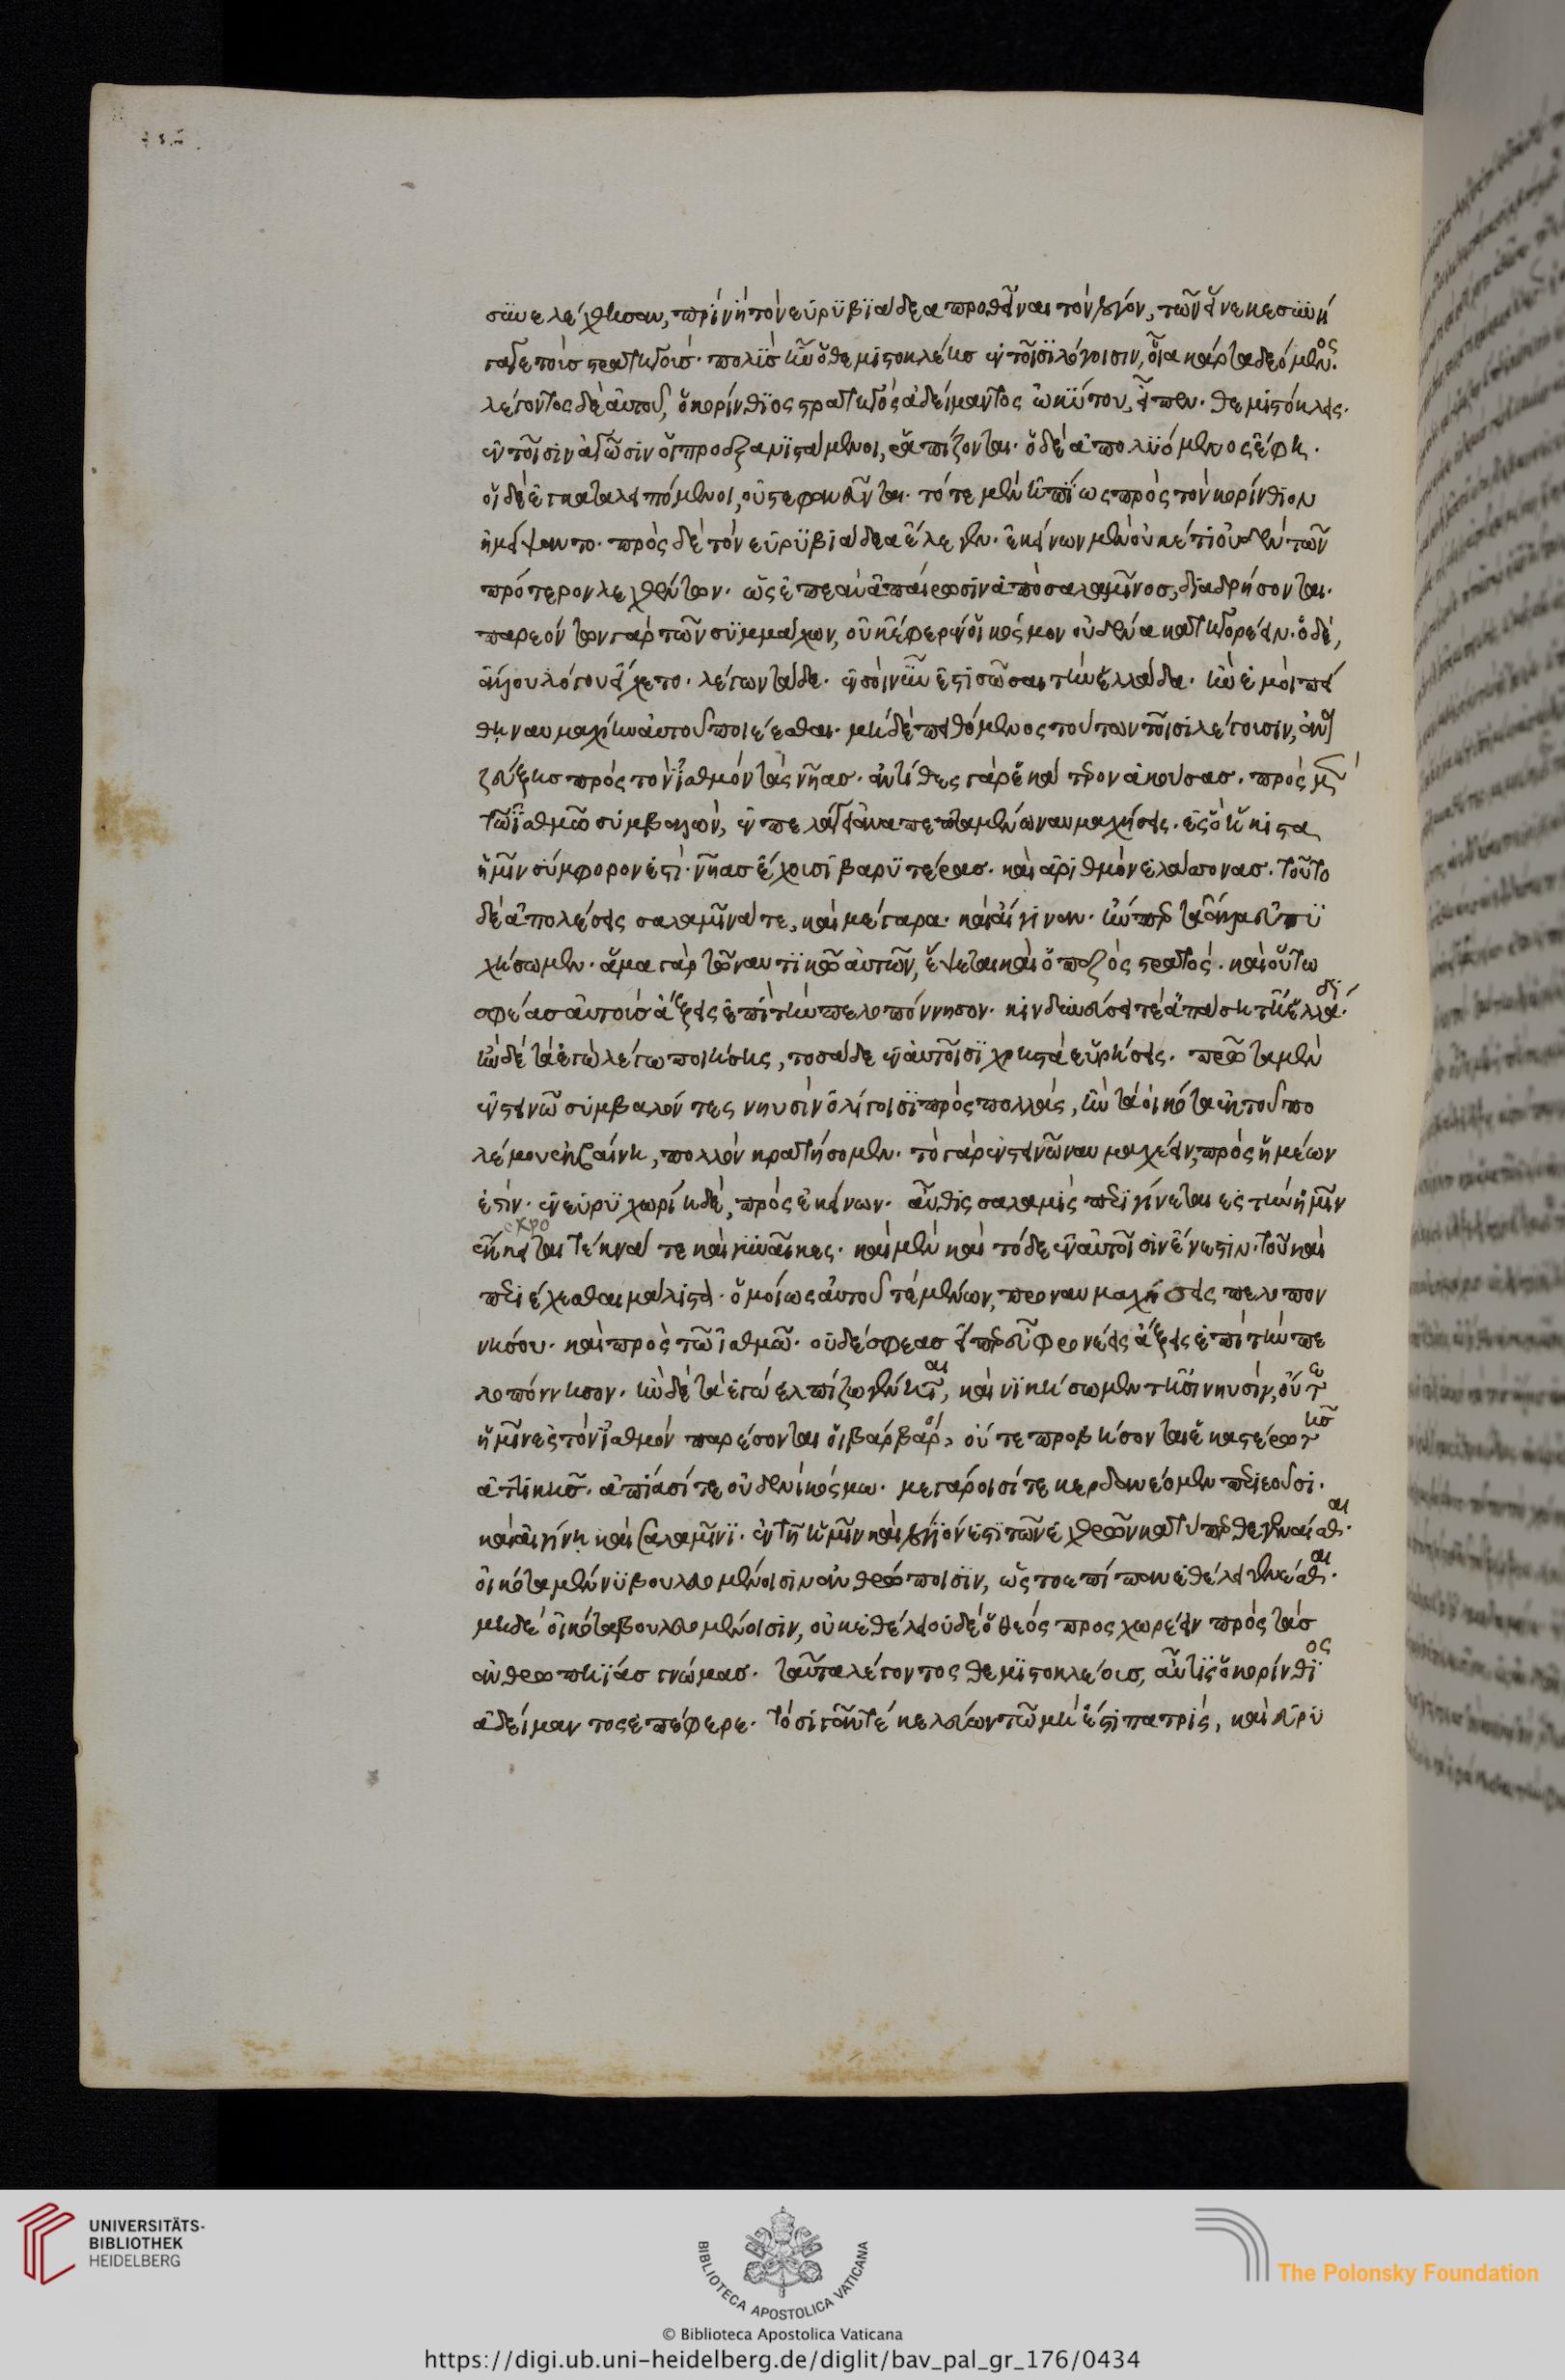 συνελέχθησαν, πρὶν ἢ τὸν εὐρυβιάδεα προθεῖναι τὸν λόγον, τῶν εἵνεκε συνή
γαγε τοὺς στρατηγούς· πολὺς ἦν ὁ θεμιστοκλέης ἐν τοῖσι λόγοισιν, οἷα κάρτα δεόμενος·
λέγοντος δὲ αὐτοῦ, ὁ κορίνθιος στρατηγὸς ἀδείμαντος ὠκύτου, εἶπεν· θεμιστόκλεις·
ἐν τοῖσιν ἀγῶσιν οἱ προεξανιστάμενοι, ῥαπίζονται· ὁ δὲ ἀπολυόμενος ἔφη·
οἱ δὲ ἐγκαταλειπόμενοι, οὐ στεφανεῦνται· τότε μὲν ἠπίως πρὸς τὸν κορίνθιον
ἠμείψαντο· πρὸς δὲ τὸν εὐρυβιάδεα ἔλεγεν· ἐκείνων μὲν οὐκέτι οὐδὲν τῶν
πρότερον λεχθέντων· ὡς ἐπεὰν ἀπαίρωσιν ἀπὸ σαλαμῖνος, διαδρήσονται·
παρεόντων γὰρ τῶν συμμάχων, οὐκ ἔφερέν οἱ κόσμον οὐδένα κατηγορέειν· ὁ δὲ,
ἄλλου λόγου εἴχετο· λέγων τάδε· ἐν σοὶ νῦν ἐστὶ σῶσαι τὴν ἑλλάδα· ἢν ἐμοὶ πεί
θῃ ναυμαχίην αὐτοῦ ποιέεσθαι· μὴ δὲ πειθόμενος τούτων τοῖσι λέγουσιν, ἀνα
ζεύξῃς πρὸς τὸν ἰσθμὸν τὰς νῆας· ἀντίθες γὰρ ἑκάτερον ἀκούσας· πρὸς μὲν
τῶ ἰσθμῶ συμβαλών, ἐν πελάγει ἀναπεπταμένω ναυμαχήσεις· ἐς ὃ ἥκιστα
ἡμῖν σύμφορον ἐστὶ· νῆας ἔχουσι βαρυτέρας· καὶ ἀριθμὸν ἐλάσσονας· τοῦτο
δὲ ἀπολέσεις σαλαμῖνά τε, καὶ μέγαρα· καὶ αἴγιναν· ἤν περ τὰ ἄλλα εὐτυ
χήσωμεν· ἅμα γὰρ τῶ ναυτικῶ αὐτῶν, ἕψεται καὶ ὁ πεζὸς στρατὸς· καὶ οὕτω
σφέας αὐτοὺς ἄξεις ἐπὶ τὴν πελοπόννησον· κινδυνεύσεις τε ἁπάση τῆ ἑλλάδι·
ἢν δὲ τὰ ἐγὼ λέγω ποιήσῃς, τοσάδε ἐν αὐτοῖσι χρηστὰ εὑρήσεις· πρῶτα μὲν
ἐν στεινῶ συμβαλόντες νηυσὶν ὀλίγοισι πρὸς πολλάς, ἢν τὰ οἰκότα ἐκ τοῦ πο
λέμου ἐκβαίνῃ, πολλὸν κρατήσομεν· τὸ γὰρ ἐν στεινῶ ναυμαχέειν, πρὸς ἡμέων
ἐστὶν· ἐν εὐρυχωρίη δὲ, πρὸς ἐκείνων· αὖθις σαλαμὶς περιγίνεται ἐς τὴν ἡμῖν
ἐκκεῖται τέκνά τε καὶ γυναῖκες· καὶ μὲν καὶ τόδε ἐν αὐτοῖσιν ἔνεστιν· τοῦ καὶ
περιέχεσθαι μάλιστα· ὁμοίως αὐτοῦ τε μένων, προναυμαχήσεις πελοπον
νήσου· καὶ πρὸς τῶ ἰσθμῶ· οὐδέ σφεας εἴπερ εὖ φρονέεις ἄξεις ἐπὶ τὴν πε
λοπόννησον· ἢν δὲ τὰ ἐγὼ ἐλπίζω γένηται, καὶ νικήσωμεν τῆσι νηυσίν, οὔτε
ἡμῖν ἐς τὸν ἰσθμὸν παρέσονται οἱ βάρβαροι, οὔτε προβήσονται ἑκαστέρω τῆς
ἀττικῆς· ἀπίασί τε οὐδενὶ κόσμω· μεγάροισί τε κερδανέομεν περιεοῦσι·
καὶ αἰγίνῃ καὶ σαλαμῖνι· ἐν τῆ ἡμῖν καὶ λόγιον ἐστὶ τῶν ἐχθρῶν κατύπερθε γενέσθαι·
οἰκότα μέν νυ βουλευομένοισιν ἀνθρώποισιν, ὡς τοεπίπαν ἐθέλει γενέσθαι·
μὴ δὲ οἰκότα βουλευομένοισιν, οὐκ ἐθέλει οὐδὲ ὁ θεὸς προσχωρέειν πρὸς τὰς
ἀνθρωπηίας γνώμας· ταῦτα λέγοντος θεμιστοκλέους, αὖτις ὁ κορίνθιος
ἀδείμαντος ἐπέφερε· τὸ σιγᾶν τε κελεύων τῶ μή ἐστι πατρίς, καὶ εὐρυ
UNIVERSITÄTS-
BIBLIOTHEK
HEIDELBERG
BIBLIOTECA APOSTOLICA VATICANA
The Polonsky Foundation
© Biblioteca Apostolica Vaticana
https://digi.ub.uni-heidelberg.de/diglit/bav_pal_gr_176/0434